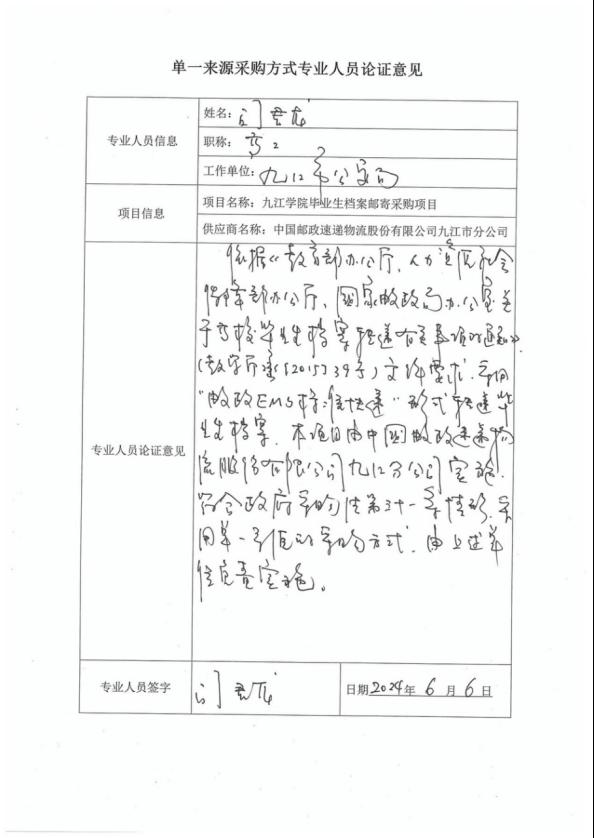 单一来源采购方式专业人员论证意见
专业人员信息
姓名：
职称：高工
工作单位：九江市公安局
项目信息
项目名称：九江学院毕业生档案邮寄采购项目
供应商名称：中国邮政速递物流股份有限公司九江市分公司
专业人员论证意见
依据《教育部办公厅、人力资源社会
保障部办公厅、国家邮政局办公室关
于高校毕业生档案转递有关事项的通知》
(教学厅函[2015]39号)文件要求，采用
“邮政EMS标准快递”形式转递毕业
生档案，本项目由中国邮政速递物
流股份有限公司九江分公司实施，
符合政府采购法第三十一条情形，采
用单一来源的采购方式，由上述单
位负责实施。
专业人员签字
日期2024年6月6日